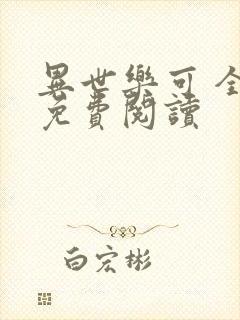 異世樂可 全
免費閱讀
白宏彬